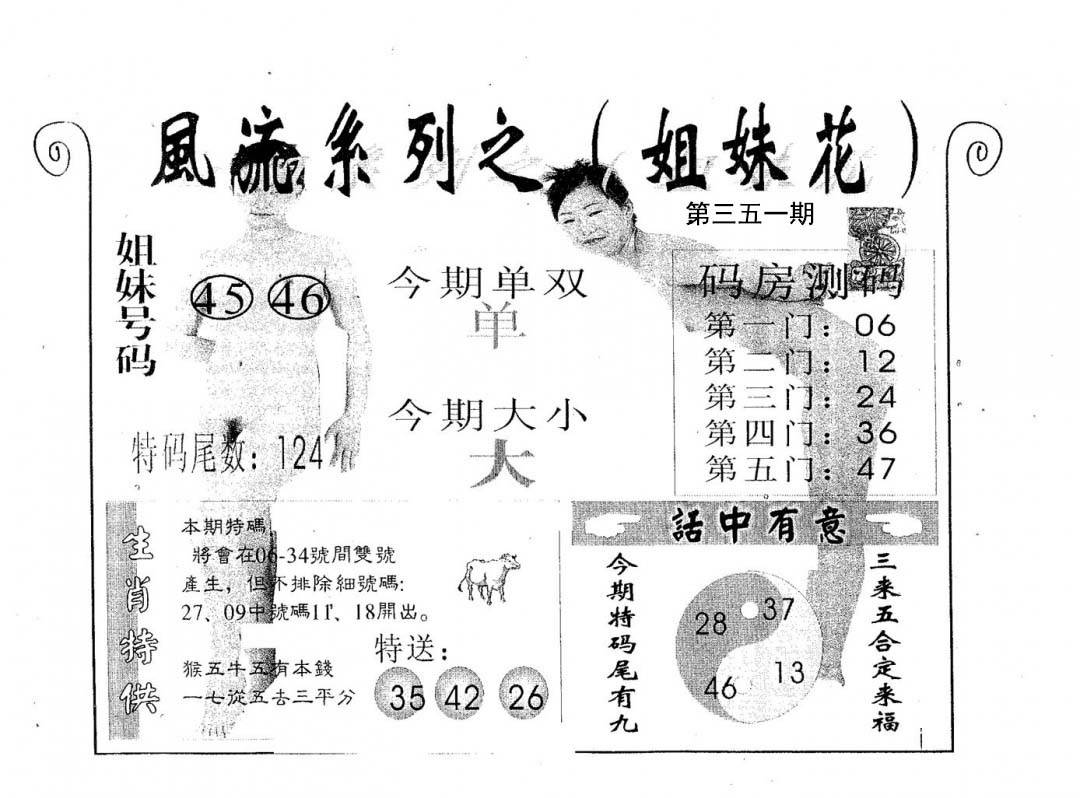 風流系列之（姐妹花）
第三五一期
姐妹号码
45 46
今期单双
单
今期大小
大
特码尾数：124
码房测码
第一门：06
第二门：12
第三门：24
第四门：36
第五门：47
生肖特供
本期特碼
將會在06-34號間雙號
產生，但不排除細號碼:
27、09中號碼11、18開出。
猴五牛五有本錢
一七從五去三平分
特送：
35 42 26
話中有意
今期特码尾有九
28 37
46 13
三来五合定来福